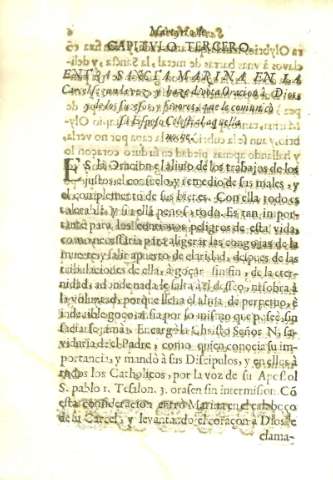 CAPITVLO TERCERO.
ENTRA SANCTA MARINA EN LA
Carcel, y haze devota Oracion à Dios
y de los y favores, que le comunicò
su Esposo Celestial aquella
noche.
ES la Oracion el alivio de los trabajos de los
justos, el consuelo, y remedio de sus males, y
el complemento de sus bienes. Con ella todo es
tolerable, y sin ella penoso todo. Es tan importante
para los continuos peligros de esta vida,
como necessaria para aligerar las congojas de la
muerte, y salir a puerto de claridad, despues de las
tribulaciones de ella, à goçar sin fin, de la eternidad,
ad onde nada le falta al deseo, ni sobra à
la voluntad, porque llena el alma de perpetuo, è
indecible goço la hartura, por lo mismo que posee, sin
saciarse jamás. Encargóla Christo Señor N. sa-
viduria de el Padre, como quien conocia su im-
portancia, y mandò à sus Discipulos, y en ellos à
todos los Catholicos, por la voz de su Apostol
S. pablo 1. Tesalon. 3. orasen sin intermision. Cō
esta consideracion entrò Marina en el calaboço
de su Carcel, y levantando el coraçon a Dios le
clama-